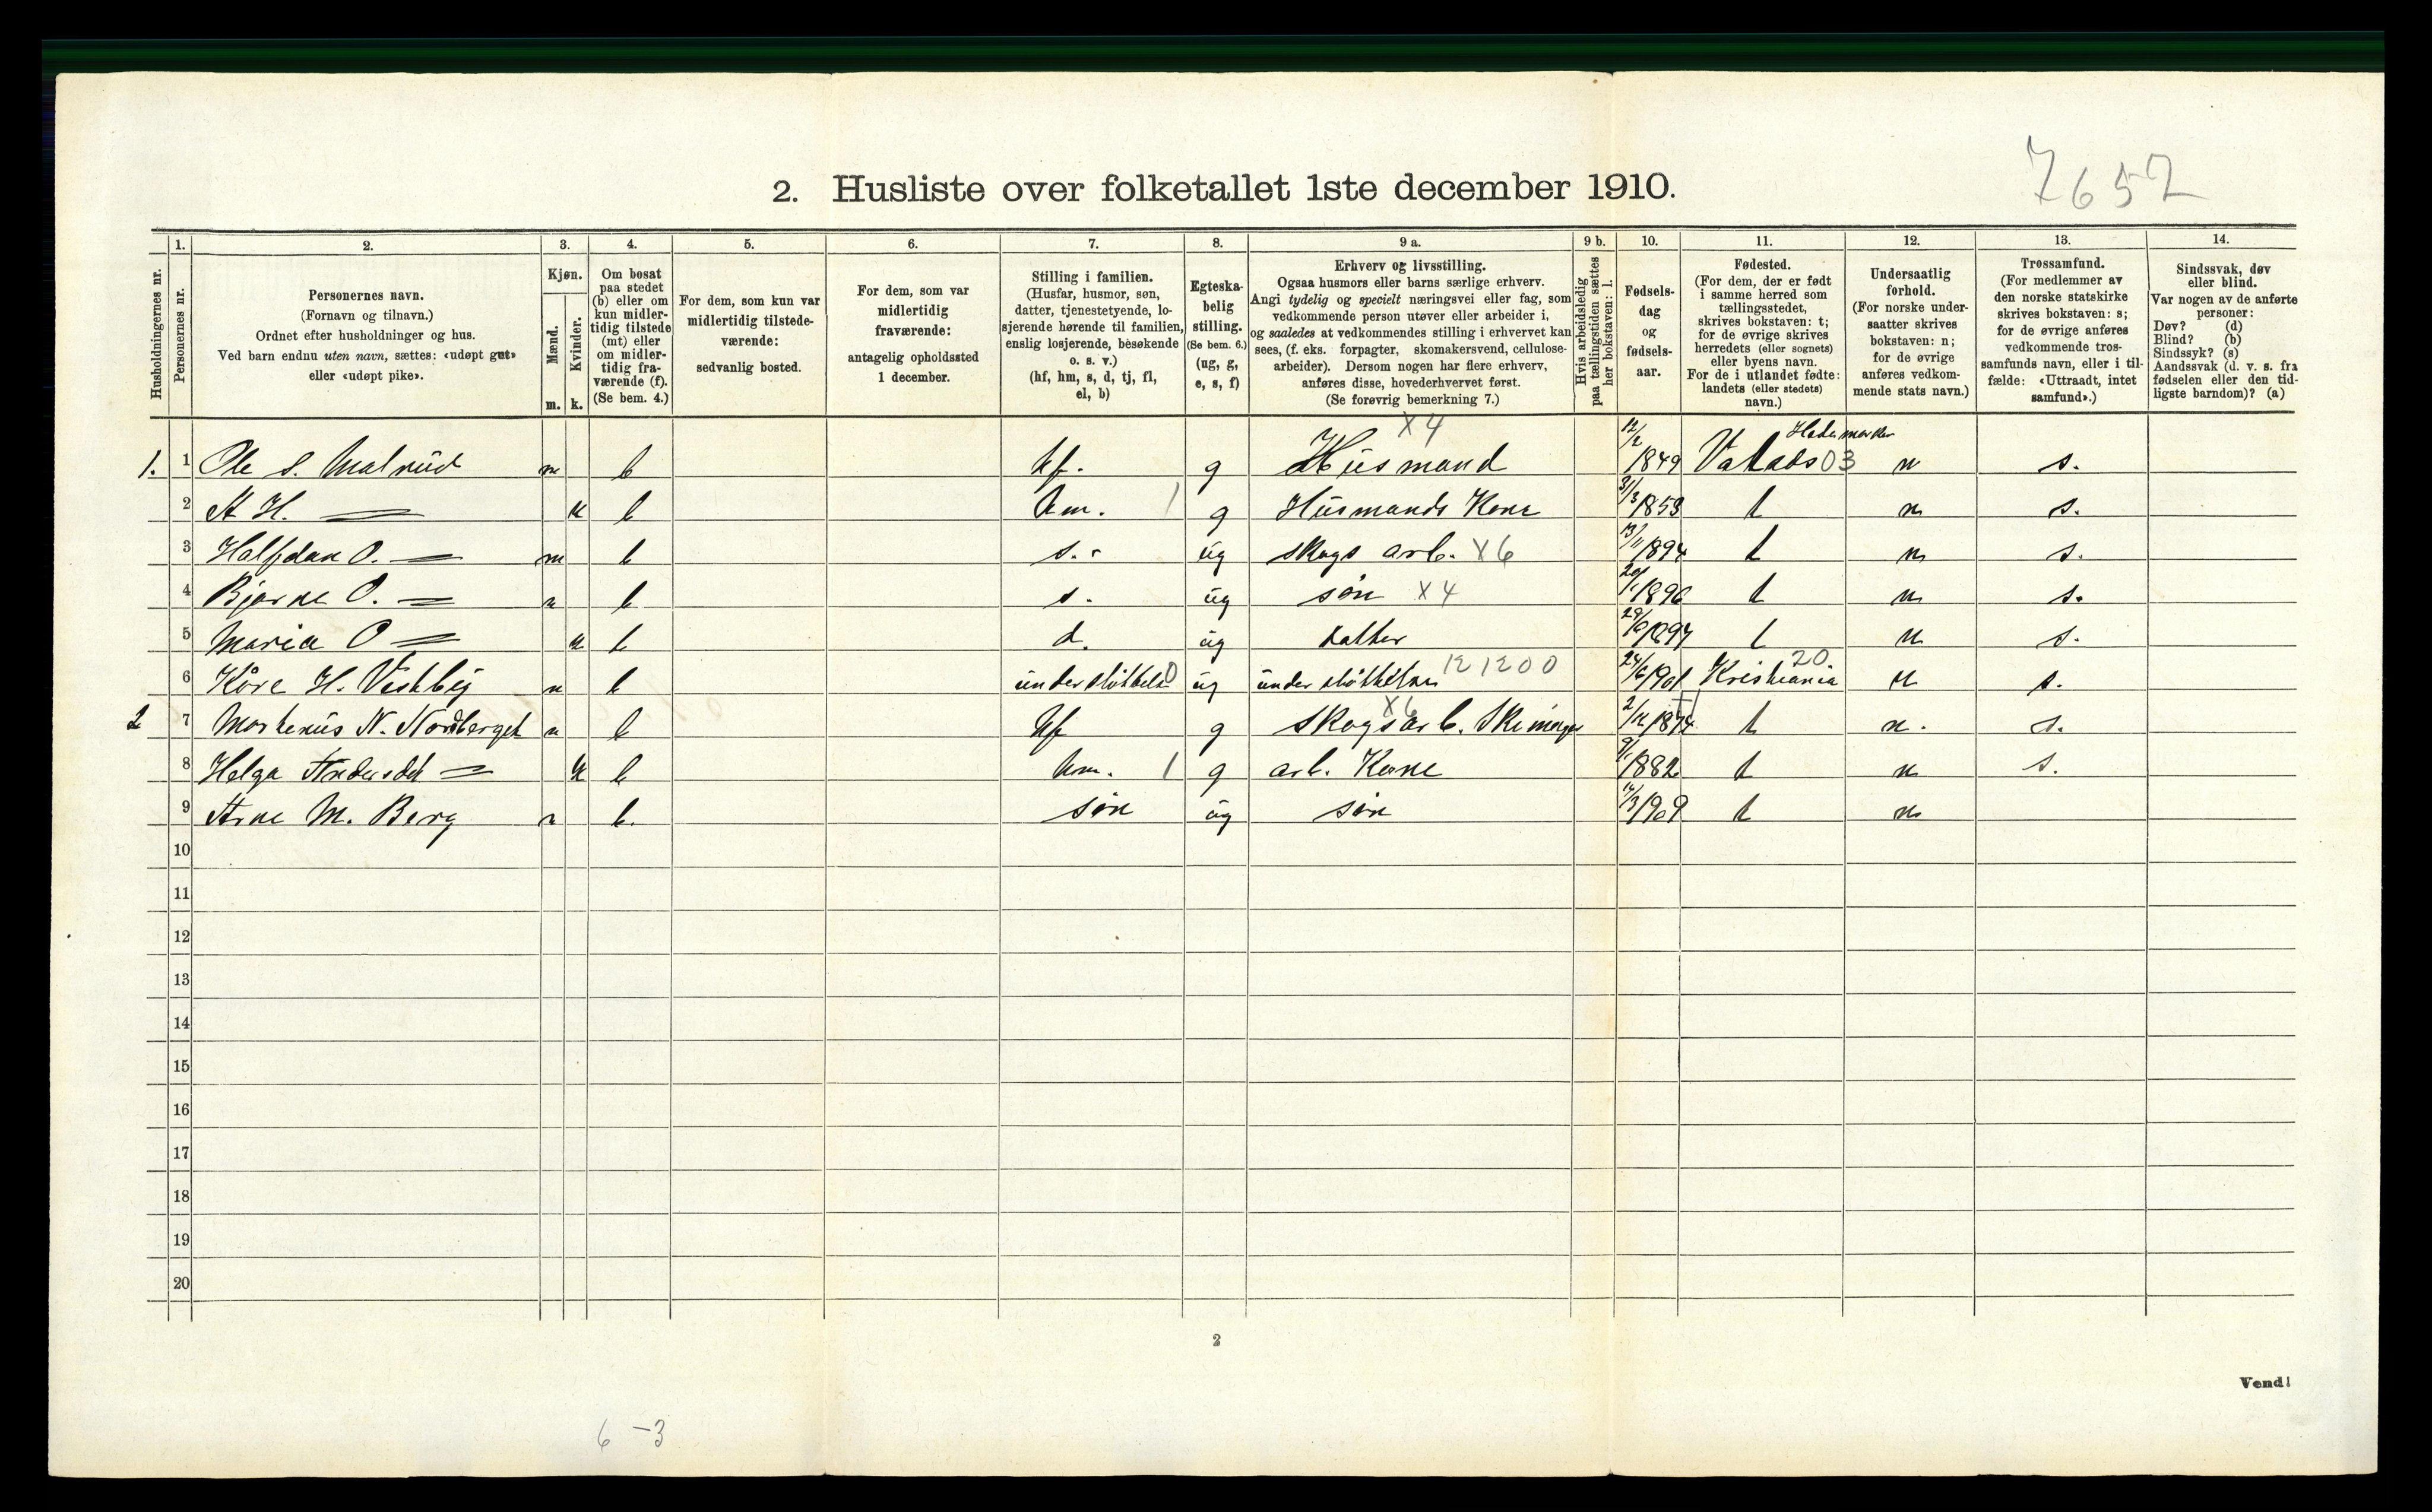 7652
2. Husliste over folketallet 1ste december 1910.
Husholdningernes nr.
1. Personernes nr.
2. Personernes navn.
(Fornavn og tilnavn.)
Ordnet efter husholdninger og hus.
Ved barn endnu uten navn, sættes: «udøpt gut»
eller «udøpt pike».
3. Kjøn.
Mænd. m.
Kvinder. k.
4. Om bosat
paa stedet
(b) eller om
kun midler-
tidig tilstede
(mt) eller
om midler-
tidig fra-
værende (f).
(Se bem. 4.)
5. For dem, som kun var
midlertidig tilstede-
værende:
sedvanlig bosted.
6. For dem, som var
midlertidig
fraværende:
antagelig opholdssted
1 december.
7. Stilling i familien.
(Husfar, husmor, søn,
datter, tjenestetyende, lo-
sjerende hørende til familien,
enslig losjerende, besøkende
o. s. v.)
(hf, hm, s, d, tj, fl,
el, b)
8. Egteska-
belig
stilling.
(Se bem. 6.)
(ug, g,
e, s, f)
9 a. Erhverv og livsstilling.
Ogsaa husmors eller barns særlige erhverv.
Angi tydelig og specielt næringsvei eller fag, som
vedkommende person utøver eller arbeider i,
og saaledes at vedkommendes stilling i erhvervet kan
sees, (f. eks. forpagter, skomakersvend, cellulose-
arbeider). Dersom nogen har flere erhverv,
anføres disse, hovederhvervet først.
(Se forøvrig bemerkning 7.)
9 b. Hvis arbeidsledig
paa tællingstiden sættes
her bokstaven: l.
10. Fødsels-
dag
og
fødsels-
aar.
11. Fødested.
(For dem, der er født
i samme herred som
tællingsstedet,
skrives bokstaven: t;
for de øvrige skrives
herredets (eller sognets)
eller byens navn.
For de i utlandet fødte:
landets (eller stedets)
navn.)
12. Undersaatlig
forhold.
(For norske under-
saatter skrives
bokstaven: n;
for de øvrige
anføres vedkom-
mende stats navn.)
13. Trossamfund.
(For medlemmer av
den norske statskirke
skrives bokstaven: s;
for de øvrige anføres
vedkommende tros-
samfunds navn, eller i til-
fælde: «Uttraadt, intet
samfund».)
14. Sindssvak, døv
eller blind.
Var nogen av de anførte
personer:
Døv? (d)
Blind? (b)
Sindssyk? (s)
Aandssvak (d. v. s. fra
fødselen eller den tid-
ligste barndom)? (a)
1. 1 Ole S. Malrud m b hf. g Husmand X4 12/2 1849 03 n s.
2 A H. — k b hm. 1 g Husmands Kone 31/3 1853 t n s.
3 Halfdan O. — m b s. ug skogs arb. X6 13/11 1894 t n s.
4 Bjarne O. — m b s. ug søn X4 1896 t n s.
5 Maria O — k b d. ug datter 1897 t n s.
6 Kåre H. Vestby m b 0 ug 121200 24/6 1901 Kristiania 20 n s.
2 7 Martenius N. Nordberget m b hf g Skogsarb. X6 1874 t n. s.
8 Helga Andersdet — k b hm. 1 g arb. Kone 9/1 1882 t n s.
9 Arne M. Berg m b. søn ug søn 1909 t n
10
11
12
13
14
15
16
17
18
19
20
2
Vend!
6 – 3